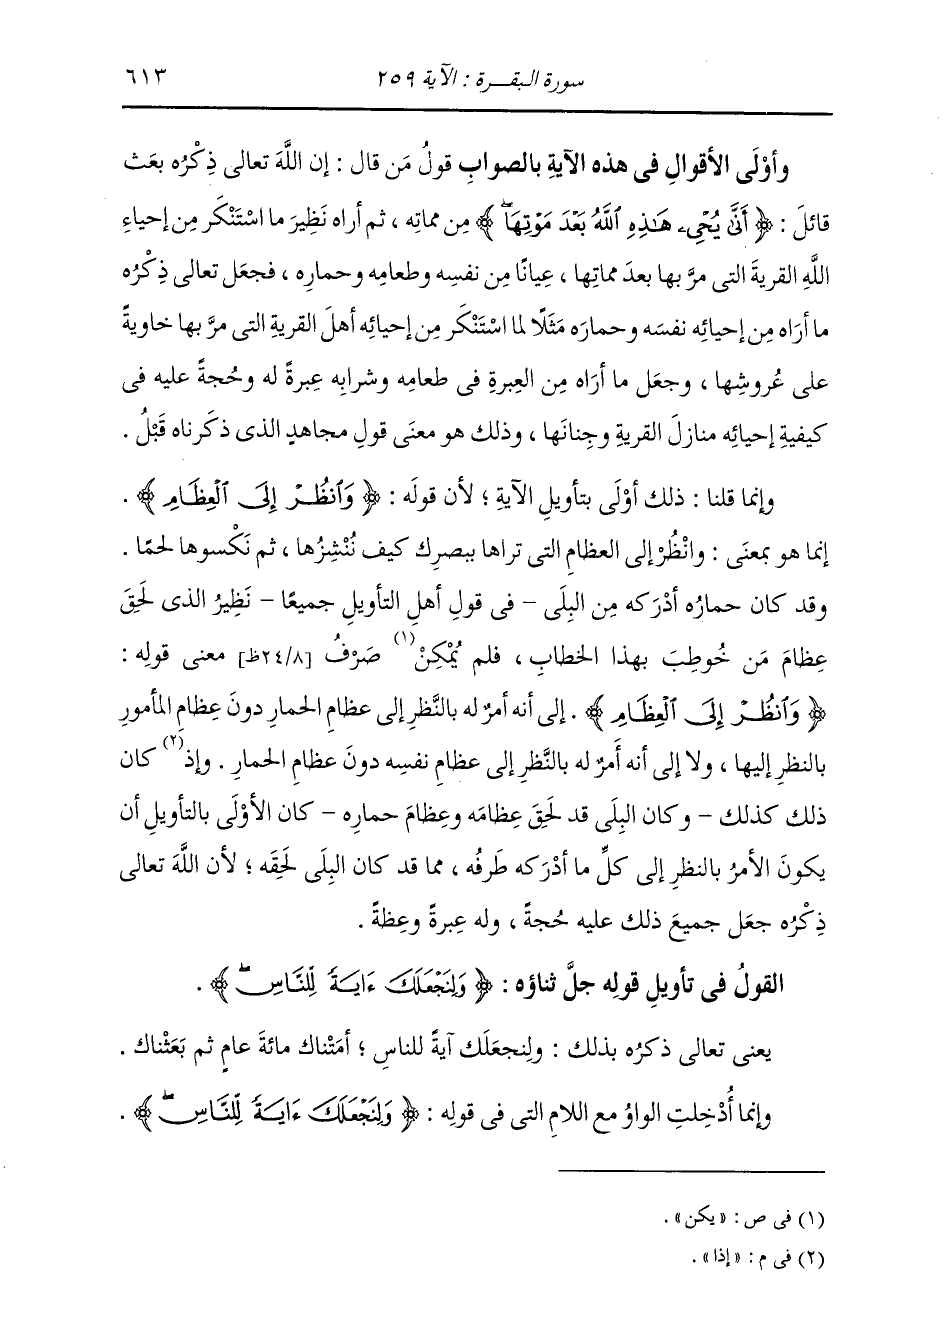 سورة البقرة : الآية ٢٥٩ ٦١٣
وأوْلَى الأقوالِ فى هذه الآيةِ بالصوابِ قولُ مَن قال : إن اللَّهَ تعالى ذِكْرُه بعَث
قائلَ : ﴿ أَنَّى يُحْىِۦ هَٰذِهِ ٱللَّهُ بَعْدَ مَوْتِهَاۖ ﴾ مِن مماتِه ، ثم أراه نظِيرَ ما اسْتَنْكَر مِن إحياءِ
اللَّهِ القريةَ التى مرَّ بها بعدَ مماتِها ، عِيانًا مِن نفسِه وطعامِه وحمارِه ، فجعَل تعالى ذِكْرُه
ما أرَاه مِن إحيائِه نفسَه وحمارَه مَثَلًا لما اسْتَنْكَر مِن إحيائِه أهلَ القريةِ التى مرَّ بها خاويةً
على عُروشِها ، وجعَل ما أرَاه مِن العِبرةِ فى طعامِه وشرابِه عِبرةً له وحُجةً عليه فى
كيفيةِ إحيائِه منازلَ القريةِ وجِنانَها ، وذلك هو معنَى قولِ مجاهدٍ الذى ذكَرناه قَبْلُ .
وإنما قلنا : ذلك أوْلَى بتأويلِ الآيةِ ؛ لأن قولَه : ﴿ وَٱنظُرْ إِلَى ٱلْعِظَامِ ﴾ .
إنما هو بمعنَى : وانْظُرْ إلى العظامِ التى تراها ببصرِك كيف نُنْشِزُها ، ثم نَكْسوها لحمًا .
وقد كان حمارُه أدْرَكه مِن البِلَى – فى قولِ أهلِ التأويلِ جميعًا – نَظِيرُ الذى لَحِقَ
عِظامَ مَن خُوطِبَ بهذا الخطابِ ، فلم يُمْكِنْ(١) صَرْفُ [٢٤/٨ظ] معنى قولِه :
﴿ وَٱنظُرْ إِلَى ٱلْعِظَامِ ﴾ . إلى أنه أمرٌ له بالنَّظرِ إلى عظامِ الحمارِ دونَ عِظامِ المأمورِ
بالنظرِ إليها ، ولا إلى أنه أَمرٌ له بالنَّظرِ إلى عظامِ نفسِه دونَ عظامِ الحمارِ . وإذ(٢) كان
ذلك كذلك – وكان البِلَى قد لَحِقَ عِظامَه وعِظامَ حمارِه – كان الأوْلَى بالتأويلِ أن
يكونَ الأمرُ بالنظرِ إلى كلِّ ما أدْرَكه طَرفُه ، مما قد كان البِلَى لَحِقَه ؛ لأن اللَّهَ تعالى
ذِكْرُه جعَل جميعَ ذلك عليه حُجةً ، وله عِبرةً وعِظةً .
القولُ فى تأويلِ قولِه جلَّ ثناؤه : ﴿ وَلِنَجْعَلَكَ ءَايَةً لِّلنَّاسِۖ ﴾ .
يعنى تعالى ذكرُه بذلك : ولِنجعَلَك آيةً للناسِ ؛ أمَتْناك مائةَ عامٍ ثم بَعَثْناك .
وإنما أُدْخِلتِ الواوُ مع اللامِ التى فى قولِه : ﴿ وَلِنَجْعَلَكَ ءَايَةً لِّلنَّاسِۖ ﴾ .
(١) فى ص : «يكن» .
(٢) فى م : «إذا» .